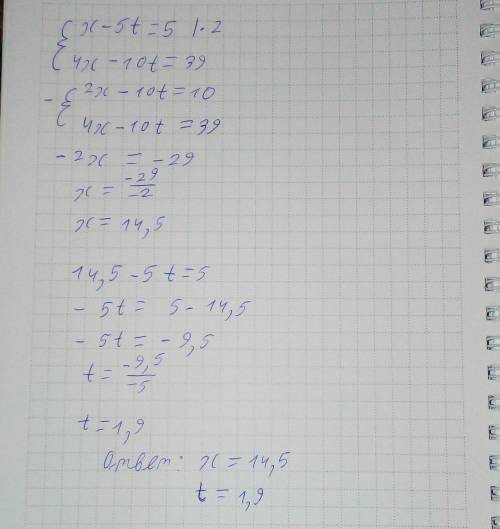 { x - 5t = 5 | · 2
{ 4x - 10t = 39
- { 2x - 10t = 10
{ 4x - 10t = 39
- 2x = - 29
x = -29/-2
x = 14,5
14,5 - 5t = 5
- 5t = 5 - 14,5
- 5t = - 9,5
t = -9,5/-5
t = 1,9
Ответ: x = 14,5
t = 1,9